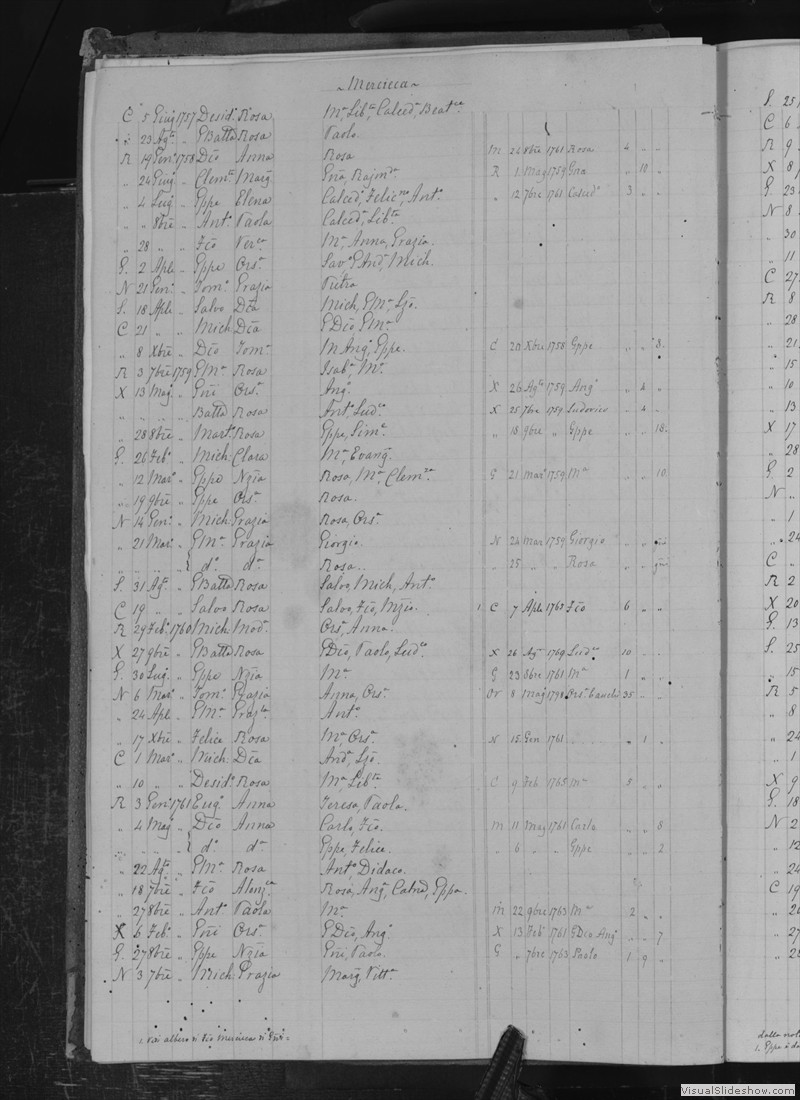 Mercieca
C 5 Giug 1757 Desid.a Rosa M.a Lib.ta Calced.a Beat.ce
" 23 Ag.to " GBatta Rosa Paolo
R 19 Gen.o 1758 Dco Anna Rosa M 24 8bre 1761 Rosa 4 " "
" 24 Giug.o " Clem.te Marg.a Gna, Rajm.da R 1 Mag 1759 Gna " 10 "
" 4 Lug " Gppe Elena Calced.a Felic.na, Ant.o " 12 7bre 1761 Calced.a 3 " "
" " 8bre " Ant.o Paola Calced.a Lib.ta
" 28 " " Fco Ver.ca M.a Anna, Grazia.
G. 2 Aple " Gppe Ors.a Sav.o GAnd.a Mich.
N 21 Gen.o " Tom.o Grazia Pietro
S. 18 Aple " Salvo Dca Mich, GM.a
C 21 " " Mich. Dca GDco, GM.a
" 8 Xbre " Dco Tom.a M Ang.a Gppe. C 20 Xbre 1758 Gppe " " 8.
R 3 7bre 1759 GM.a Rosa Isab.a M.a
X 13 Mag.o " Gni Ors.a Ang.o X 26 Ag.to 1759 Ang.o " 4 "
" " " " Batta Rosa Ant.o Lud.co X 25 7bre 1759 Ludovico " 4 "
" 28 8bre " Mart.o Rosa Gppe, Sim.e " 18 9bre " Gppe " " 18.
G. 26 Feb.o " Mich. Clara M.a Evang.a
" 12 Mar.o " Gppe Nzia Rosa, M.a Clem.za G 21 Mar.o 1759 M.a " " 10
" 19 9bre " Gppe Ors.a Rosa.
N 14 Gen.o " Mich. Grazia Rosa, Ors.a
" 21 Mar.o " { GM.a Grazia Giorgio N 24 Mar 1759 Giorgio " " gni
" " " " { d.o d.a Rosa.. " 25 " " Rosa " " gni
S. 31 Ag.o " GBatta Rosa Salvo, Mich, Ant.o
C 19 " " Salvo Rosa Salvo, Fco, Nzio. 1. C 7 Aple 1763 Fco 6 " "
R 29 Feb.o 1760 Mich. Mod.a Ors.a, Anna.
X 27 9bre " GBatta Rosa GDco, Paolo, Lud.co X 26 Ag.o 1769 Lud.co 10 " "
G. 30 Lug " Gppe Nzia M.a G 23 8bre 1761 M.a 1 " "
N 6 Mar.o " Tom.o Grazia Anna, Ors.a Or 8 Mag 1791 Ors.a 35 " "
" 24 Aple " GM.a Graz.la Ant.o
" 17 Xbre " Felice Rosa M.a Ors.a N 15 Gen 1761 . . . . " 1 "
C 1 Mar.o " Mich. Dca And.a
" 10 " " Desid.o Rosa M.a Lib.ta C 9 Feb 1765 M.a 5 " "
R 3 Gen.o 1761 Eug.o Anna Teresa, Paola.
" 4 Mag.o " { Dco Anna Carlo, Fco. M 11 Mag 1761 Carlo " " 8
" " " " { d.o d.a Gppe, Felice. " 6 " " Gppe " " 2
" 22 Ag.to " GM.a Rosa Ant.o Didaco.
" 18 7bre " Fco Rosa, Ang.a Gppa.
" 27 8bre " Ant.o Paola M.a M 22 9bre 1763 M.a 2 " "
X 6 Feb.o " Gni Ors.a GDco, Ang.o X 13 Feb.o 1761 GDco Ang.o " " 7
G. 27 8bre " Gppe Nzia Gni, Paolo. G " 7bre 1763 Paolo 1 9 "
N 3 7bre " Mich. Grazia Marg.a Vitt.a
1. albero Fco Mercieca
S. 25
C 6
R 9
X 8
G. 23
N 8
" 30
" 11
C 27
R 8
" 28
" 21
" 15
" 10
" 13
X 17
" 28
G. 2
N "
" 1
" 24
C "
R 2
X 20
G. 13
S. 25
" 15
R 5
" 8
" 24
" 1
X 9
G. 18
N 2
" 12
" 24
C 19
" 26
" 27
" 25
dalla
1. Gppe
VisualSlideshow.com